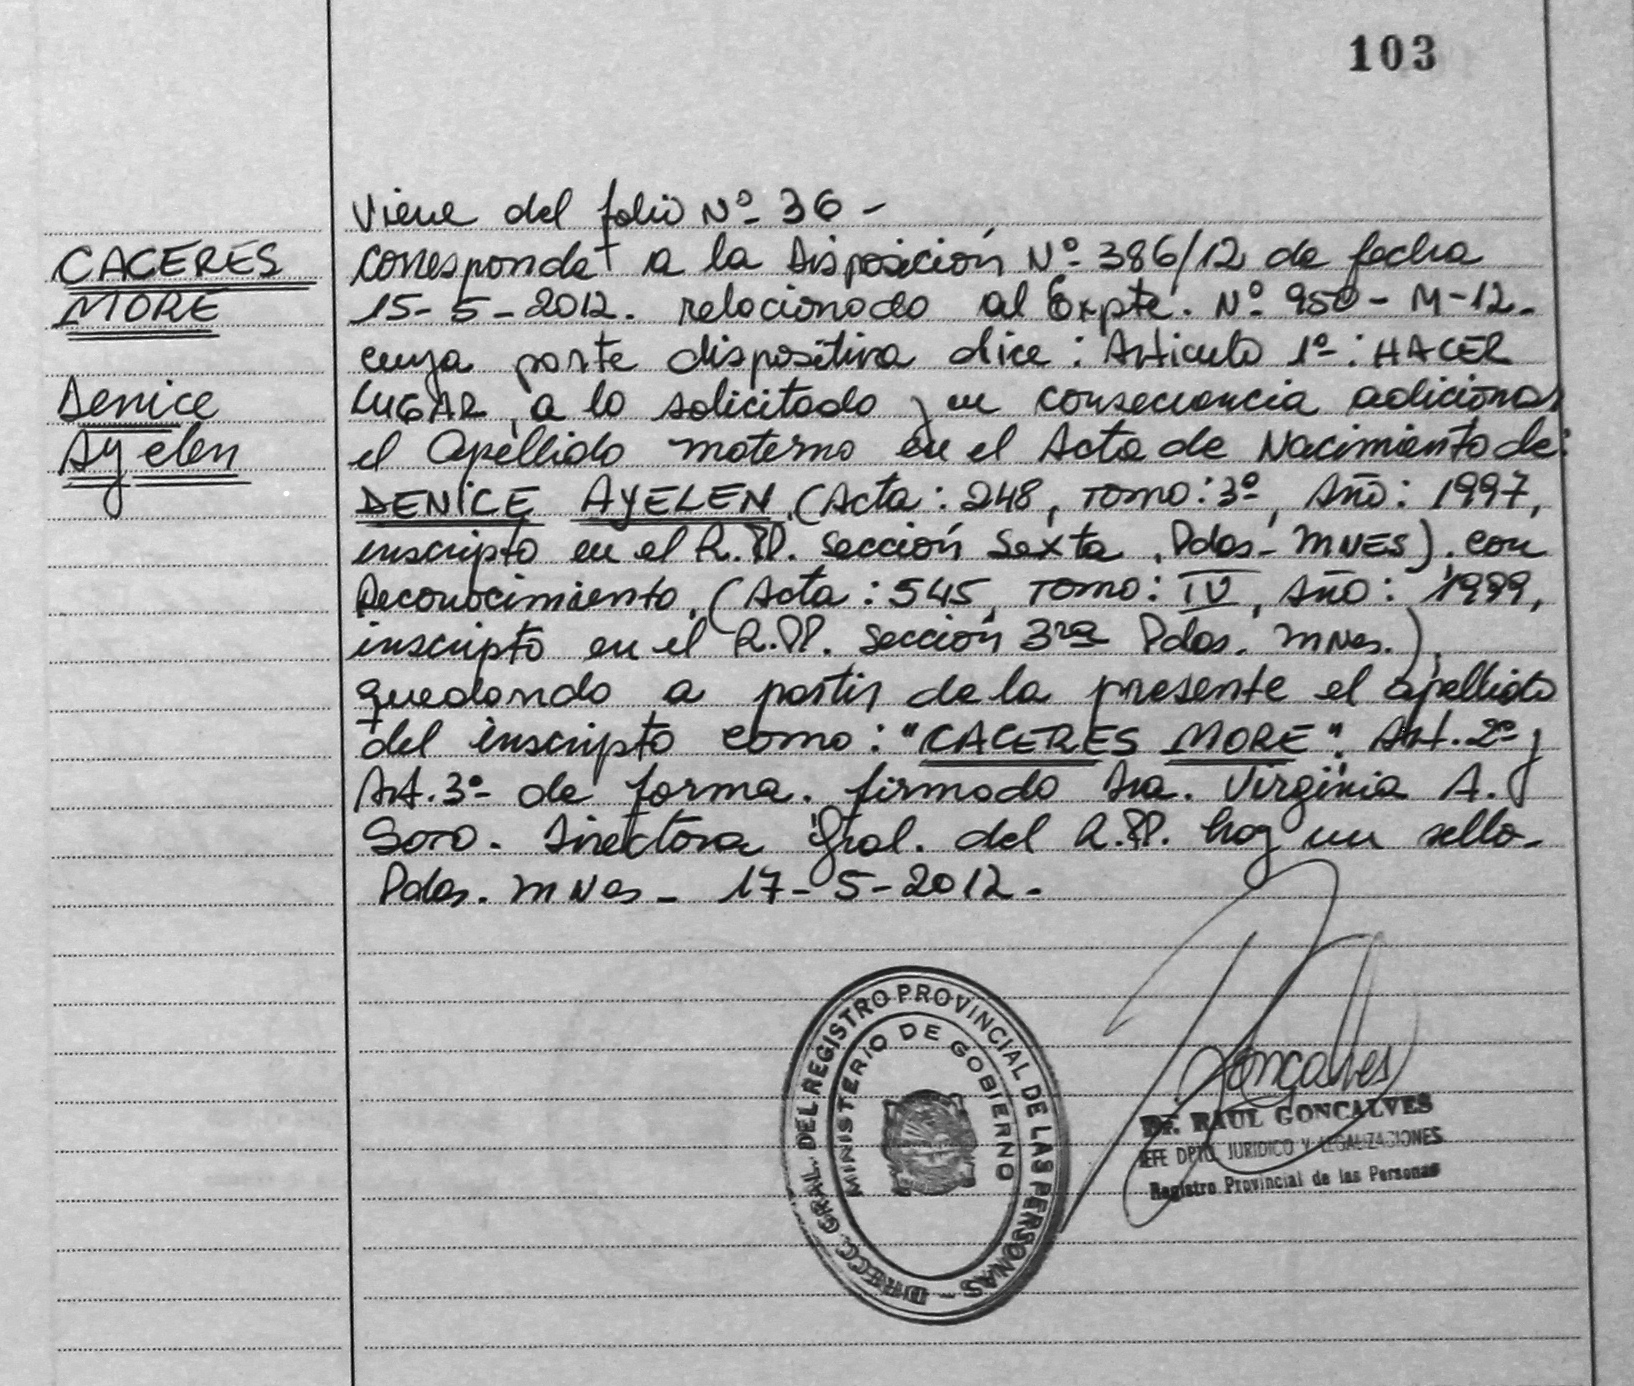 103
CACERES
MORE
Denice
Ayelen
Viene del folio Nº 36 -
Corresponde a la Disposición Nº 386/12 de fecha
15-5-2012. relacionado al Expte. Nº 950-M-12.
cuya parte dispositiva dice: Articulo 1º: HACER
LUGAR, a lo solicitado y en consecuencia adicionar
el Apellido materno en el Acta de Nacimiento de:
DENICE AYELEN, (Acta: 248, Tomo: 3º, Año: 1997,
inscripto en el R.PP. Sección Sexta, Pdas- MNES), con
Reconocimiento, (Acta: 545, Tomo: IV, Año: 1999,
inscripto en el R.PP. Sección 3ra Pdas. MNes.),
quedando a partir de la presente el apellido
del inscripto como: "CACERES MORE". Art. 2º y
Art. 3º de forma. firmado Dra. Virginia A.
Soro. Directora Gral. del R.PP. hay un sello-
Pdas. MNes - 17-5-2012.
DIRECC. GRAL. DEL REGISTRO PROVINCIAL DE LAS PERSONAS -
MINISTERIO DE GOBIERNO
Goncalves
Dr. RAUL GONCALVES
JEFE DPTO. JURIDICO Y LEGALIZACIONES
Registro Provincial de las Personas